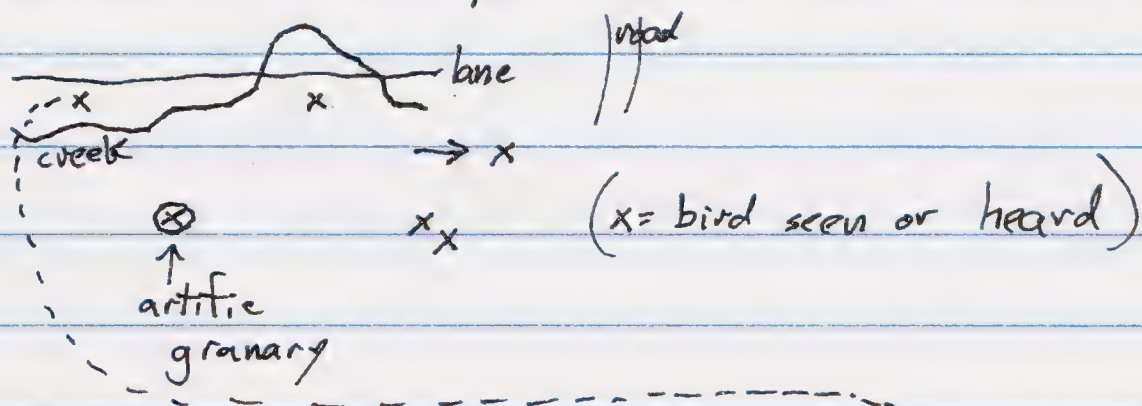 road
lane
x x
creek
→ x
x
x x
(x = bird seen or heard)
↑
artific
granary